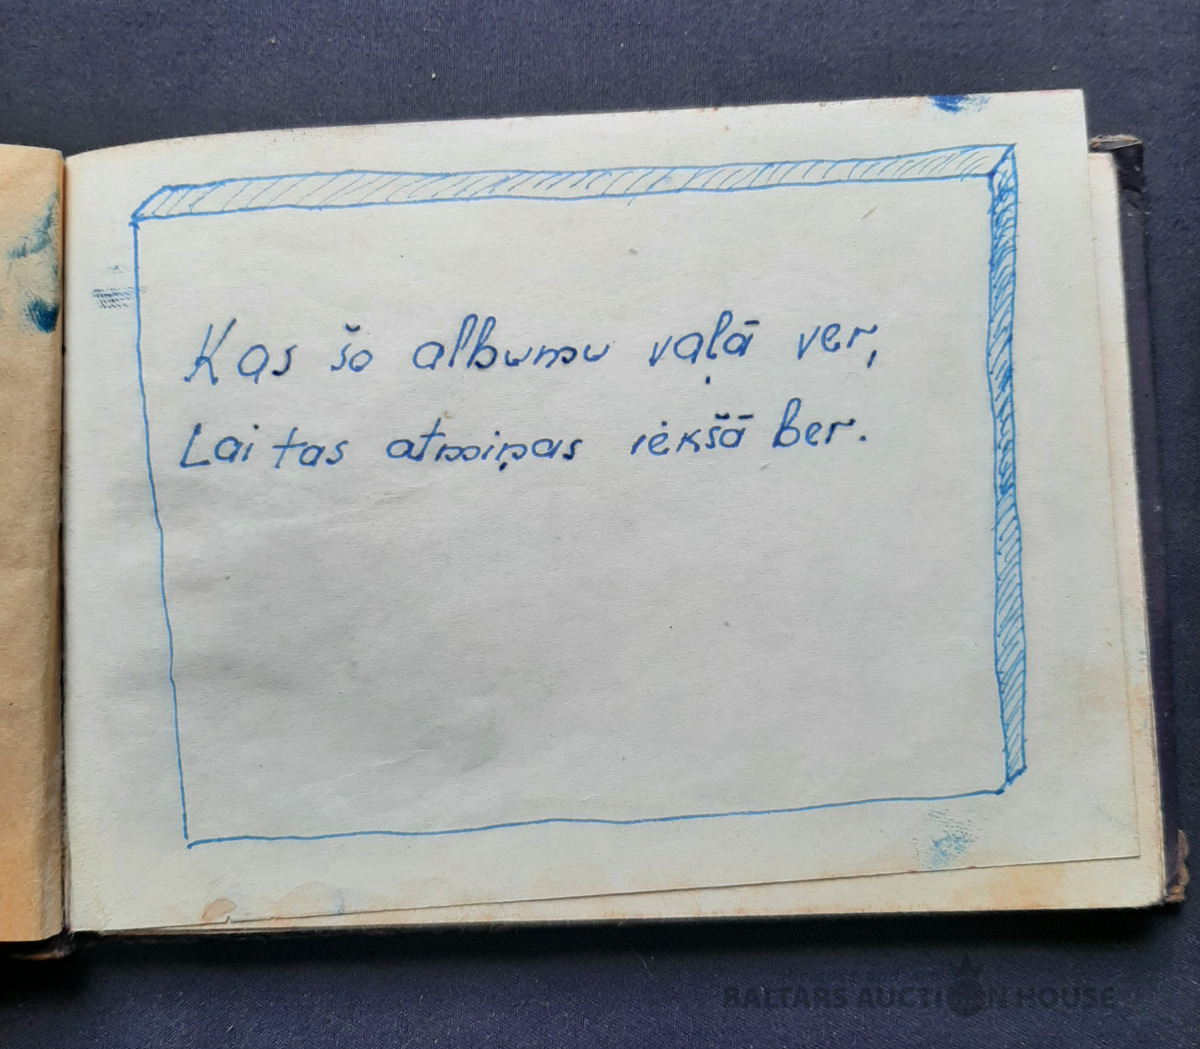 Kas šo albumu vaļā ver,
Lai tas atmiņas iekšā ber.
BALTARS AUCTION HOUSE